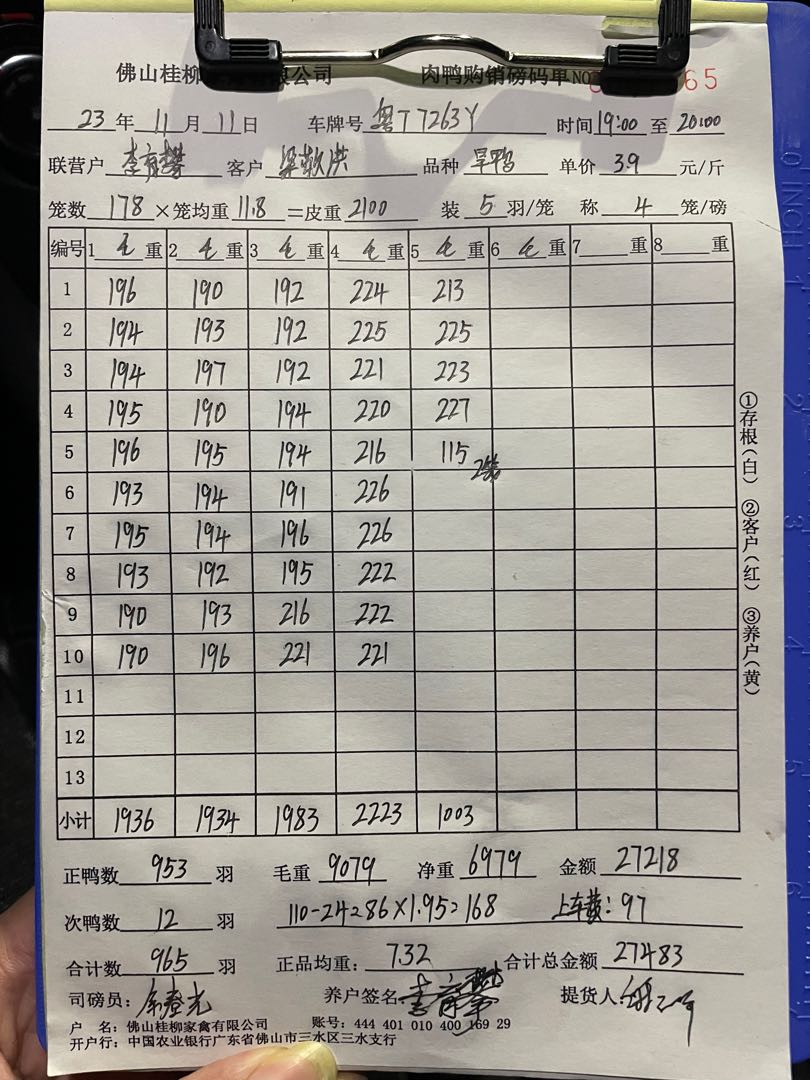 佛山桂柳 有限公司 肉鸭购销磅码单NO 65
23年11月11日 车牌号 粤T7263Y 时间19:00至20:00
联营户 客户 品种 旱鸭 单价 3.9 元/斤
笼数 178 ×笼均重 11.8 =皮重 2100 装 5 羽/笼 称 4 笼/磅
编号 1 毛 重 2 毛 重 3 毛 重 4 毛 重 5 毛 重 6 毛 重 7 重 8 重
1 196 190 192 224 213
2 194 193 192 225 225
3 194 197 192 221 223
4 195 190 194 220 227
5 196 195 194 216 115
6 193 194 191 226
7 195 194 196 226
8 193 192 195 222
9 190 193 216 222
10 190 196 221 221
11
12
13
小计 1936 1934 1983 2223 1003
①存根(白) ②客户(红) ③养户(黄)
正鸭数 953 羽 毛重 9079 净重 6979 金额 27218
次鸭数 12 羽 110-24=86×1.95=168 上车费:97
合计数 965 羽 正品均重: 7.32 合计总金额 27483
司磅员: 养户签名 提货人
户 名: 佛山桂柳家禽有限公司 账号: 444 401 010 400 169 29
开户行: 中国农业银行广东省佛山市三水区三水支行